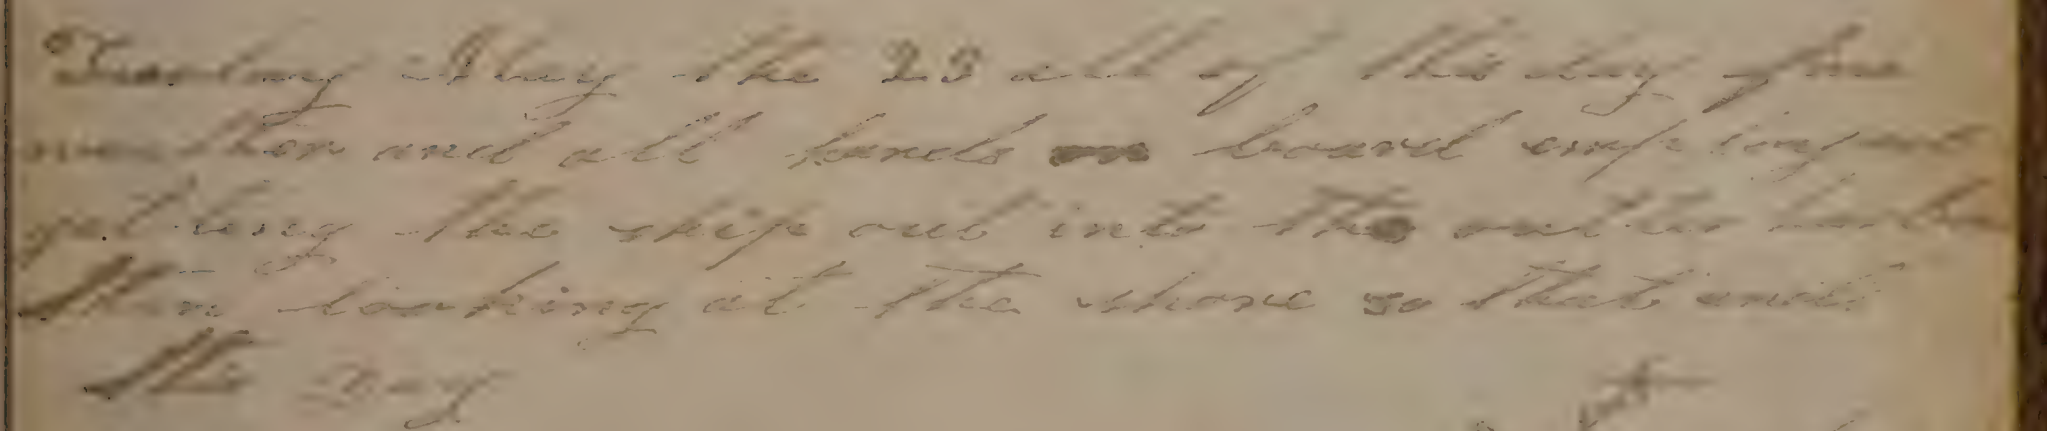 Tuesday May the 23 all of this day fine
weather and all hands on board employed
getting the ship out into the outer
then looking at the shore so that ends
the day